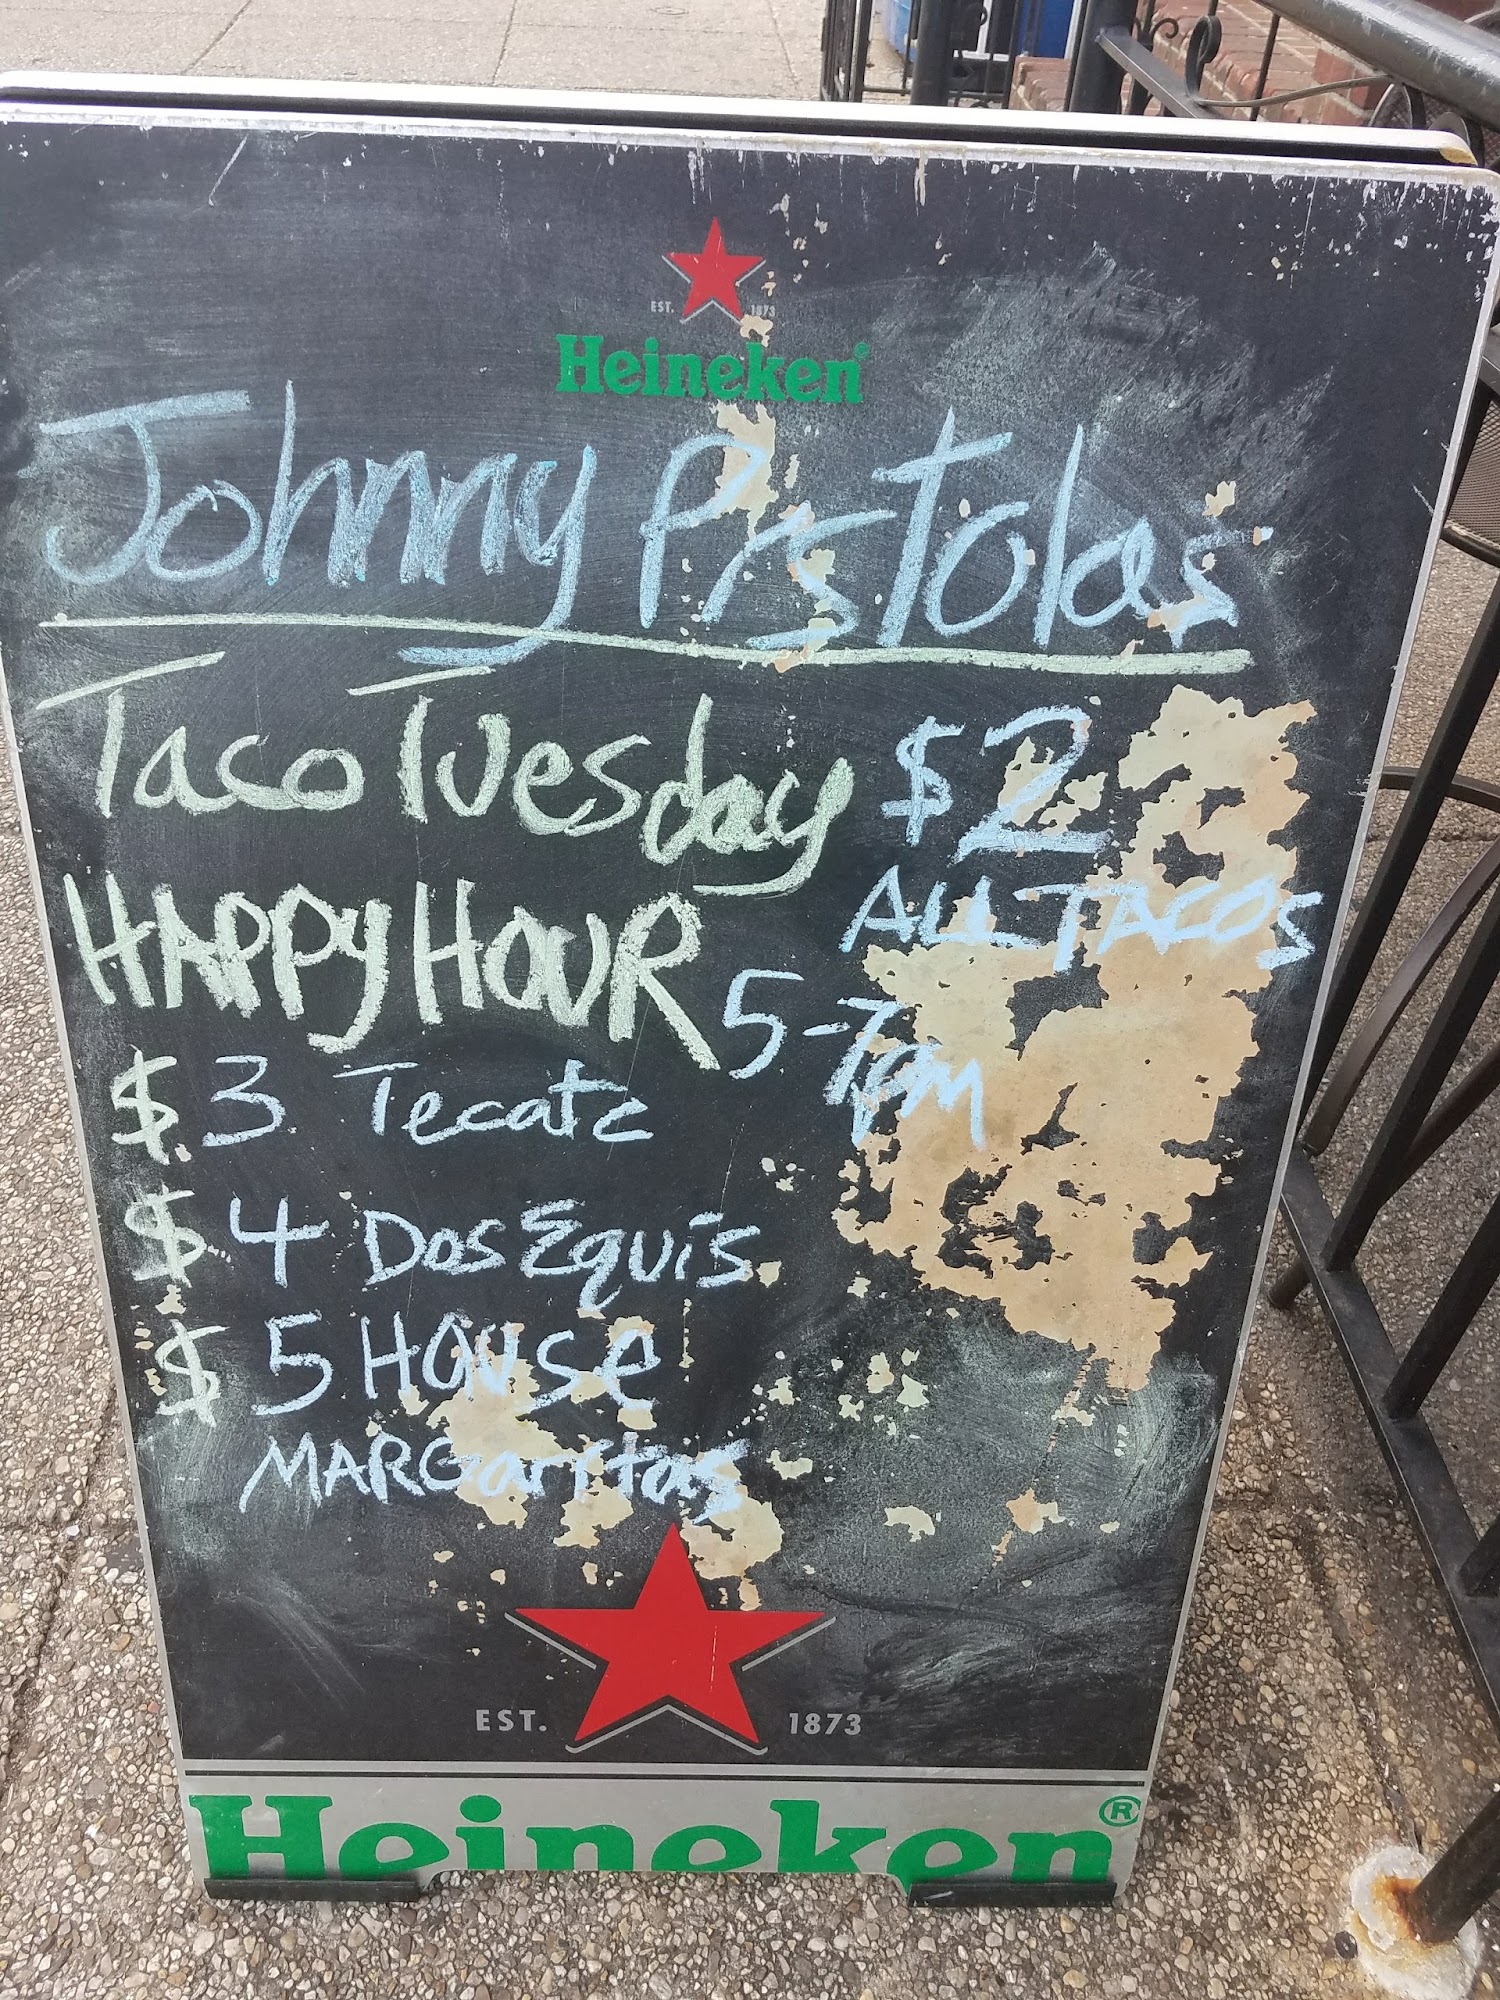 EST. 1873
Heineken®
Johnny Pistolas
Taco Tuesday $2
ALL TACOS
HAPPY HOUR 5-7pm
$3 Tecate
$4 Dos Equis
$5 House
MARGaritas
EST. 1873
Heineken®